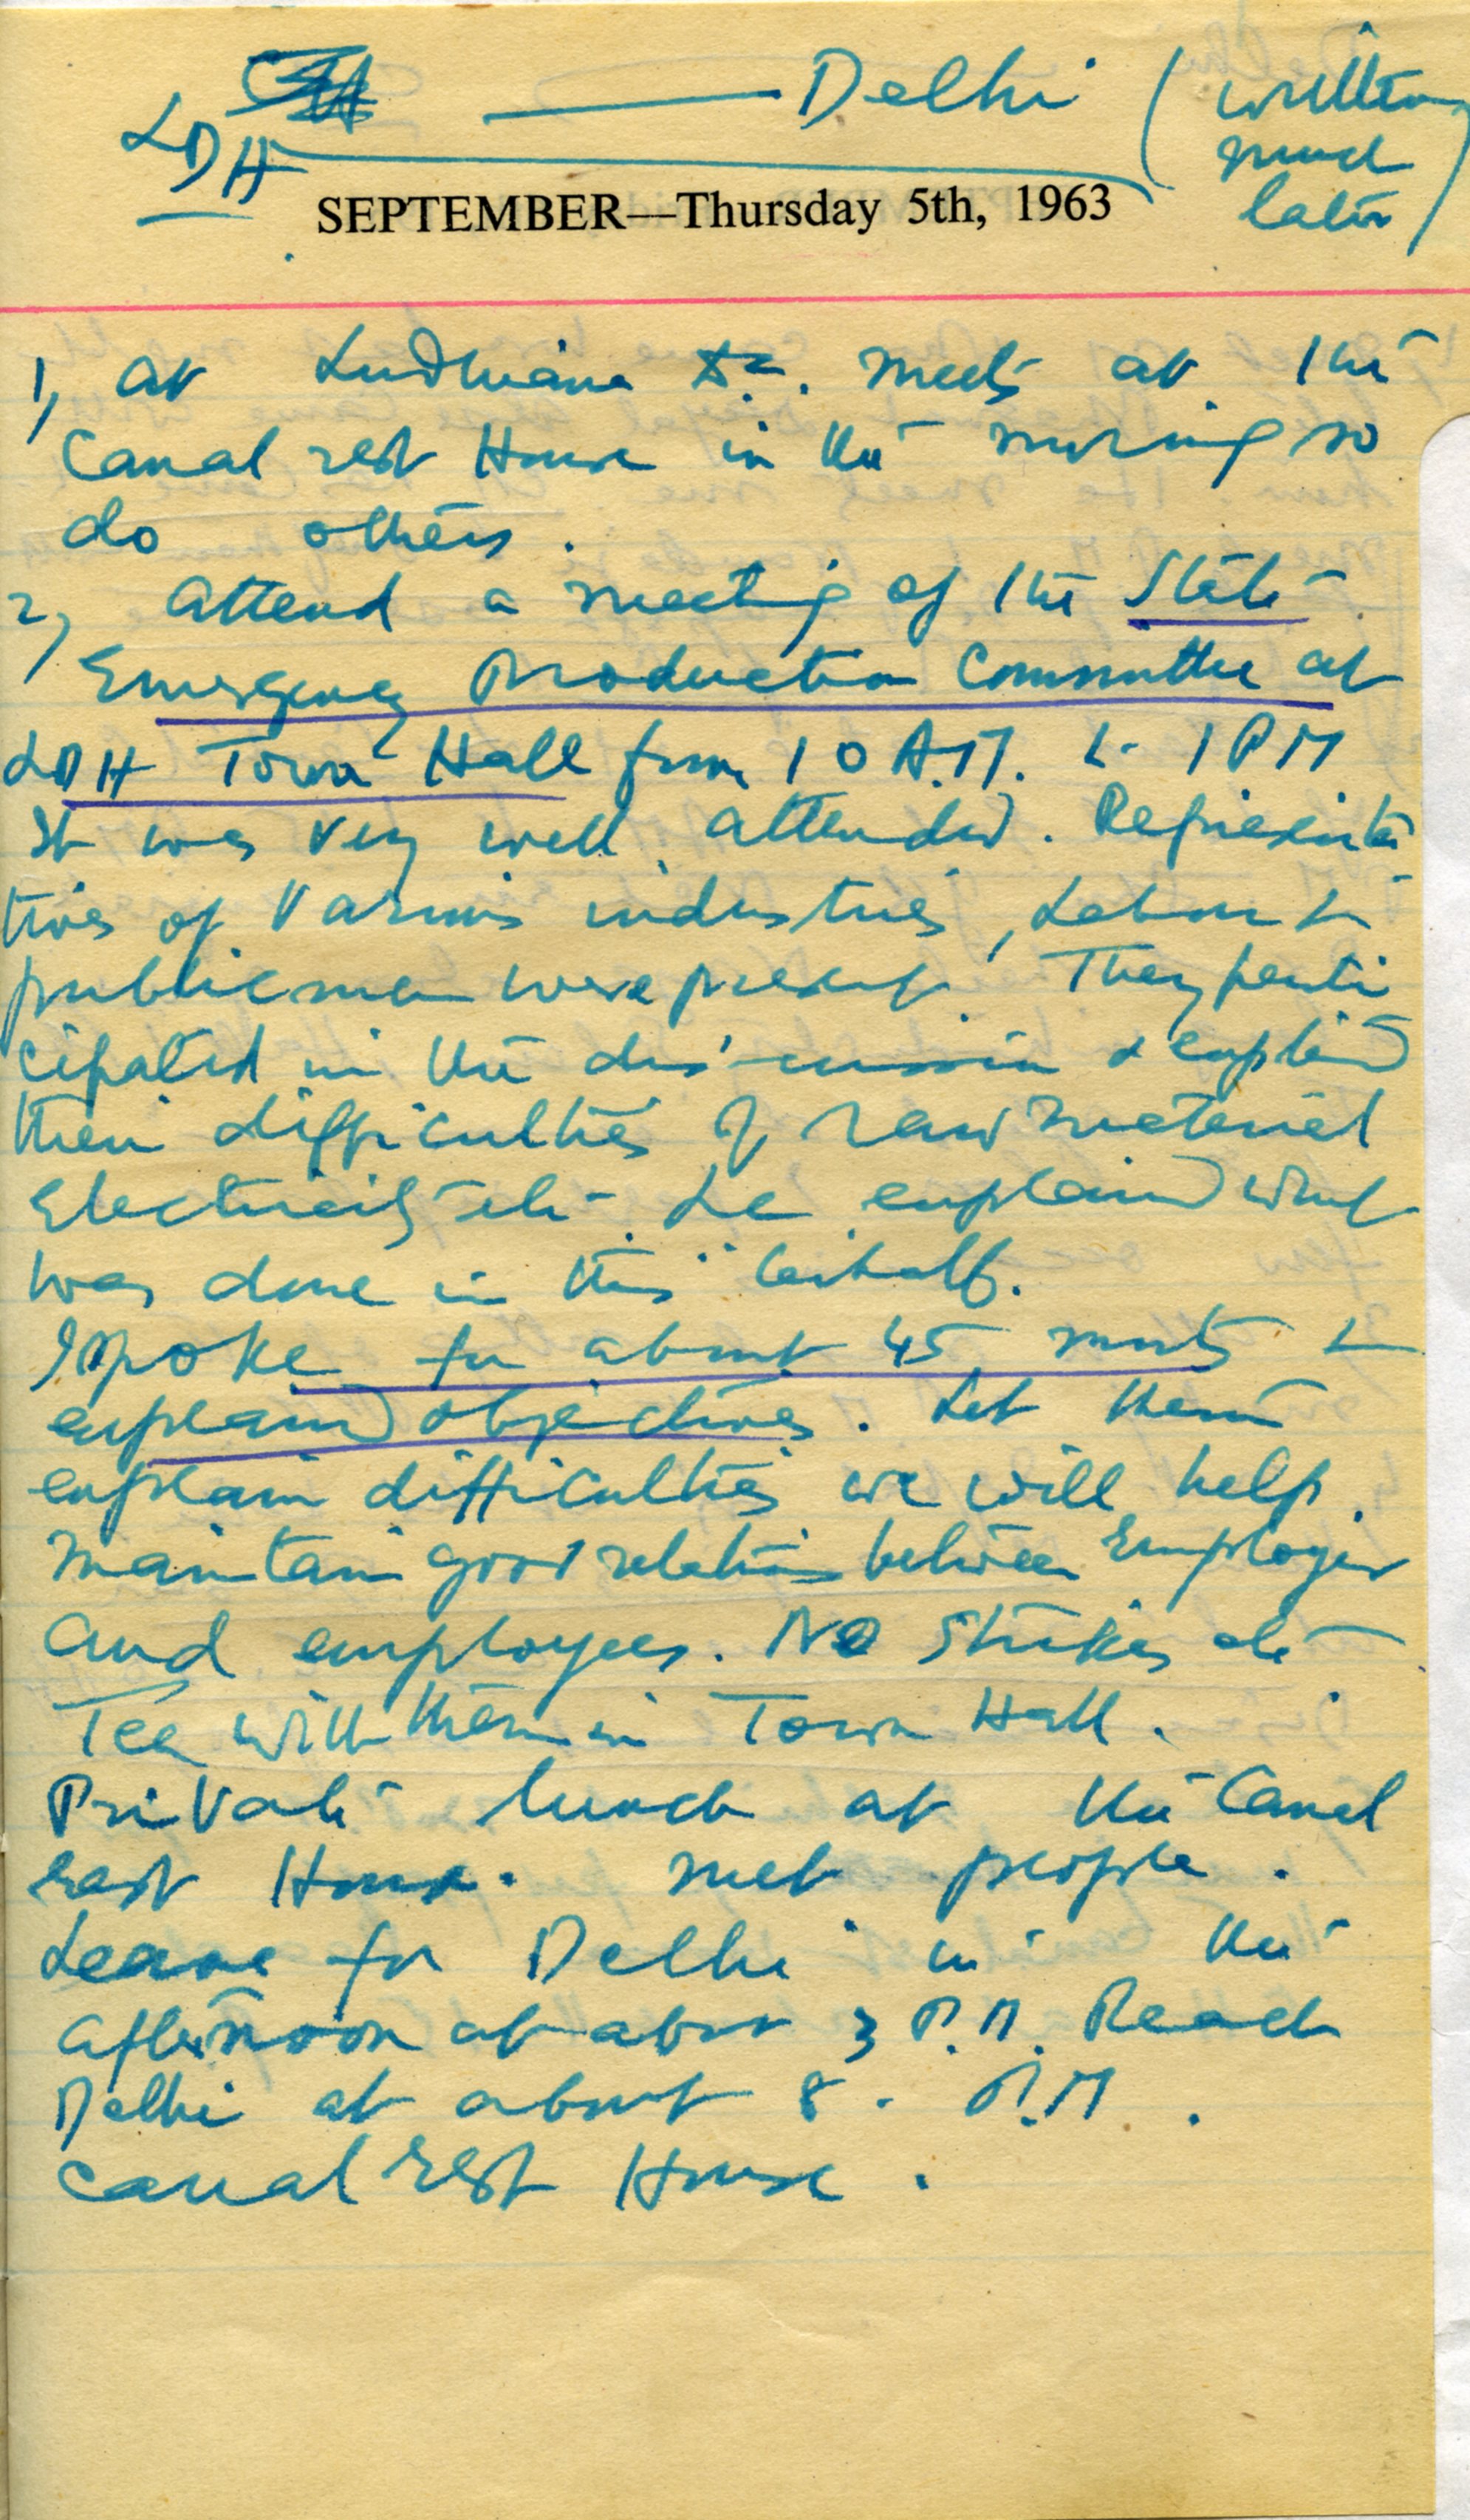 LDH — Delhi (written
much
later)
SEPTEMBER—Thursday 5th, 1963
1) At Ludhiana meets at the
Canal rest House in the morning so
do others.
2) Attend a meeting of the State
Emergency Production Committee at
LDH Town Hall from 10 A.M. to 1 PM
It was very well attended. Representa
tives of various industries, Labour &
public men were present. They parti
cipated in the discussion & explained
their difficulties of raw material
Electricity etc. explained what
was done in this behalf.
I spoke for about 45 mnts &
explained objectives. Let them
explain difficulties we will help
maintain good relations between Employer
and employees. No strikes etc
Tea with them in Town Hall.
Private lunch at the Canal
rest House. met people.
Leave for Delhi in the
afternoon at about 3 P.M. Reach
Delhi at about 8. P.M.
Canal rest House.